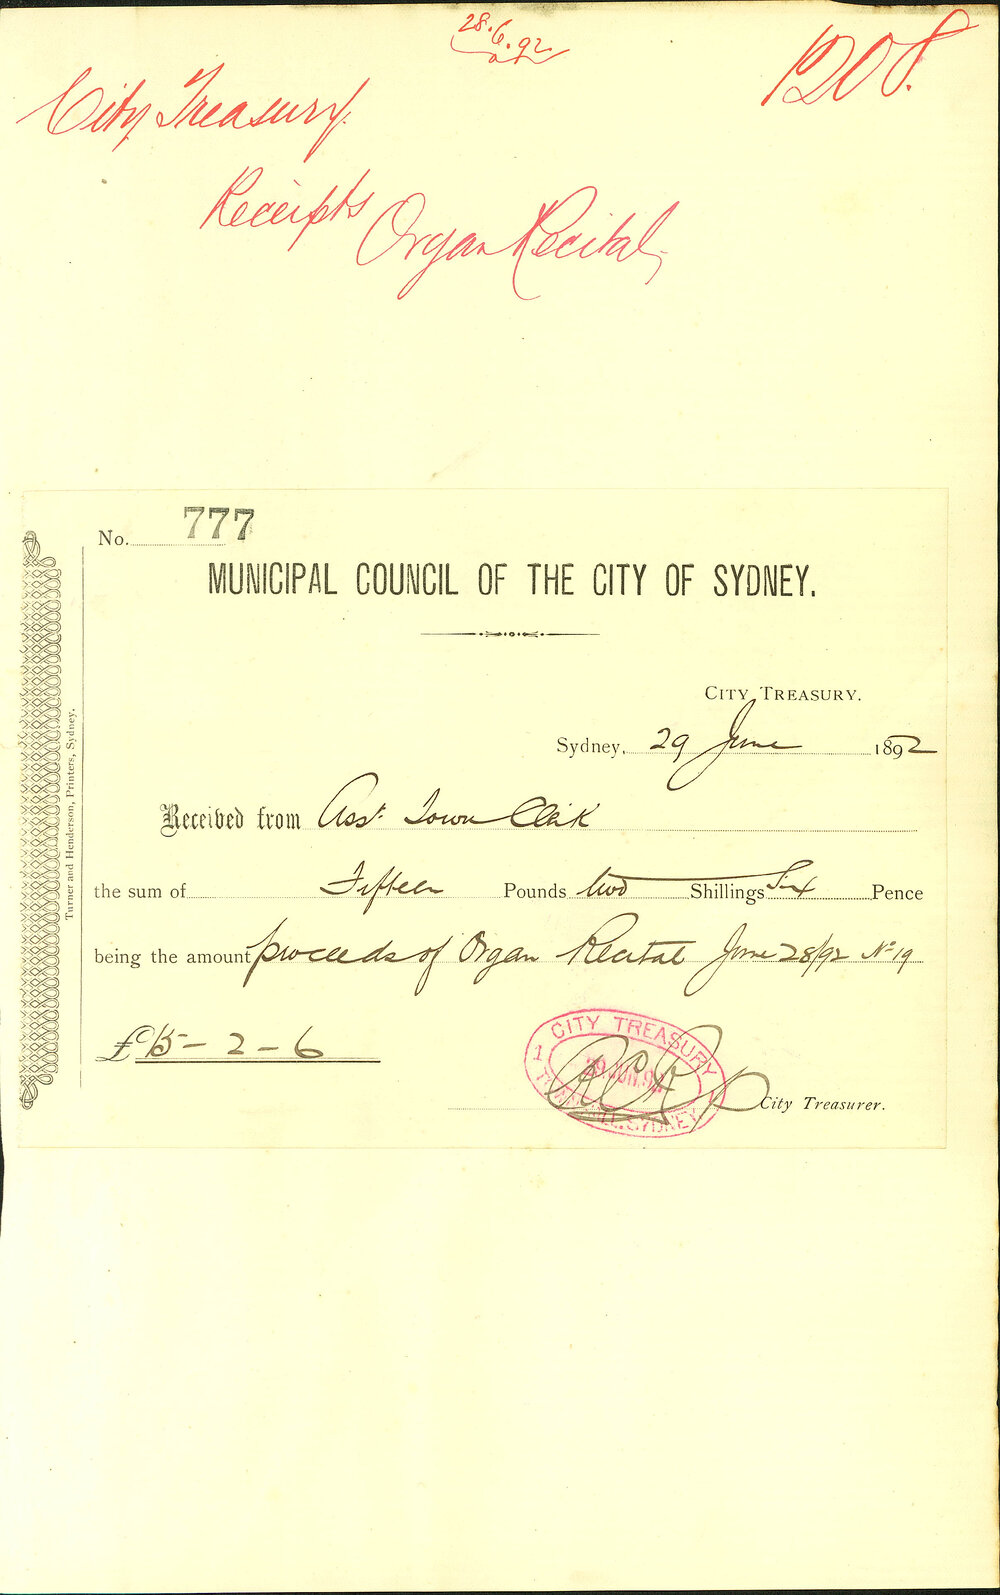 28.6.92
1208.
City Treasury.
Receipts
Organ Recital,
No. 777
MUNICIPAL COUNCIL OF THE CITY OF SYDNEY.
CITY TREASURY.
Sydney, 29 June 1892
Received from Asst. Town Clerk
the sum of Fifteen Pounds two Shillings Six Pence
being the amount proceeds of Organ Recital June 28/92 No 19
£15-2-6
CITY TREASURY
1
29 JUN. 92
TOWN HALL, SYDNEY
City Treasurer.
Turner and Henderson, Printers, Sydney.